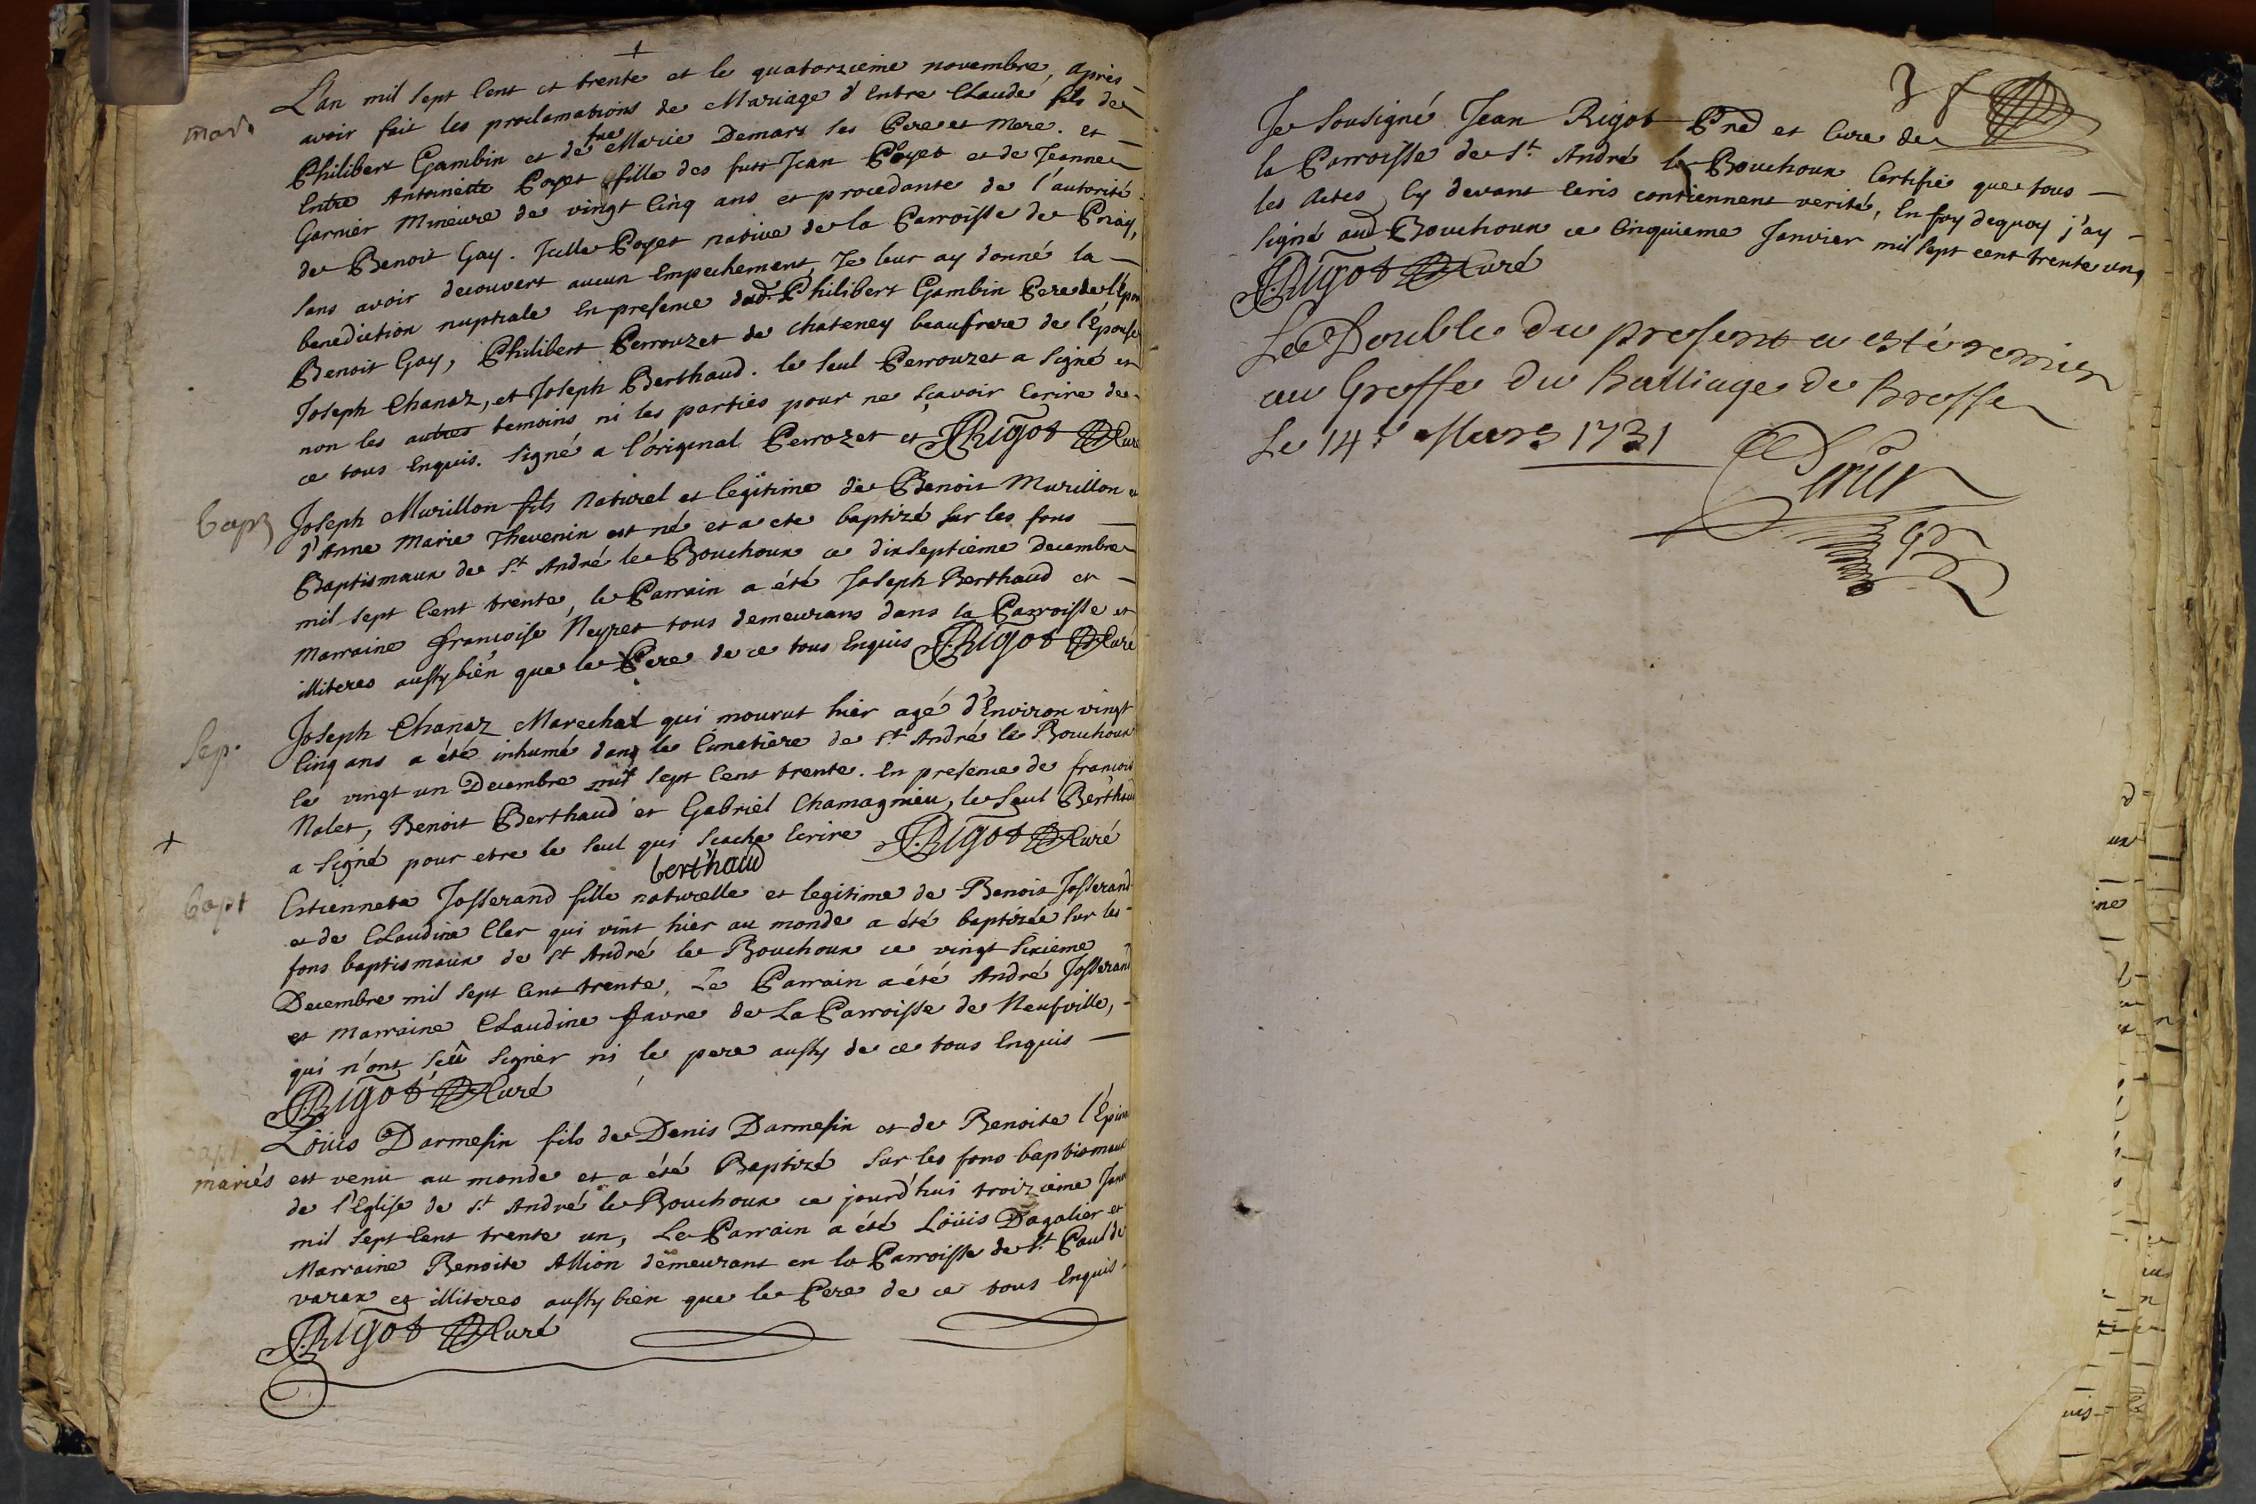 +
mar.
L'an mil sept Cent et trente et le quatorzieme novembre, après
avoir fait les proclamations de Mariage d'Entre Claude fils de
Philibert Gambin et de fue Marie Demars ses Pere et Mere. et
Entre Antoinette Poyet fille des futs Jean Poyet et de Jeanne
Garnier Mineure de vingt Cinq ans et procedante de l'autorité
de Benoit Gay. Jcelle Poyet native de la Parroisse de Priay,
sans avoir decouvert aucun Empechement, Je leur ay donné la
benediction nuptiale En presence dud. Philibert Gambin Pere de l'Epou
Benoit Gay, Philibert Perrouzet de chateney beaufrere de l'épouse
Joseph Chanaz, et Joseph Berthaud. le seul Perrouzet a signé et
non les autres temoins, ni les parties pour ne sçavoir Ecrire de
ce tous Enquis. signé a l'original Perrozet et J. Rigot Curé
bapt
Joseph Murillon fils naturel et legitime de Benoit Murillon et
d'Anne Marie Thevenin est né et a ete baptizé sur les fons
Baptismaux de St André le Bouchoux ce dixseptieme decembre
mil sept Cent trente, le Parrain a été Joseph Berthaud et
Marraine françoise Neyret tous demeurans dans la Parroisse et
illiteres aussy bien que le Pere de ce tous Enquis J. Rigot Curé
Sep.
Joseph Chanaz Marechal qui mourut hier agé d'Environ vingt
Cinq ans a été inhumé dans le Cimetiere de St André le Bouchoux
le vingt un Decembre mil sept Cent trente. En presence de francois
Nalet, Benoit Berthaud et Gabriel Chamagnieu, le seul Berthaud
+
a signé pour etre le seul qui scache Ecrire J. Rigot Curé
berthaud
bapt
Estiennette Josserand fille naturelle et legitime de Benoit Josserand
et de Claudine Cler qui vint hier au monde a été baptizée sur les
fons baptismaux de St André le Bouchoux ce vingt sixieme
Decembre mil sept Cent trente, Le Parrain a été André Josserand
et Marraine Claudine favre de La Parroisse de Neufville,
qui n'ont sçû signer ni le pere aussy de ce tous Enquis
J. Rigot Curé
bapt
Loüis Darmesin fils de Denis Darmesin et de Benoite l'Epin
mariés est venu au monde et a été Baptizé sur les fons baptismaux
de l'Eglise de St André le Bouchoux ce jourd'hui troizieme Janv
mil sept Cent trente un, Le Parrain a été Loüis Dagalier et
Marraine Benoite Allion demeurant en la Parroisse de St Paul de
varax et illiteres aussy bien que le Pere de ce tous Enquis.
J. Rigot Curé
Je Sousigné Jean Rigot Pred et Cure de
la Parroisse de St André le Bouchoux Certifie que tous
les Actes Cy devant Ecris contiennent verité, En foy dequoy j'ay
signé aud Bouchoux ce Cinquieme Janvier mil sept cent trente unq
J. Rigot Curé
Le Double du present a esté remis
au Greffe du Balliage de Bresse
Le 14e Mars 1731